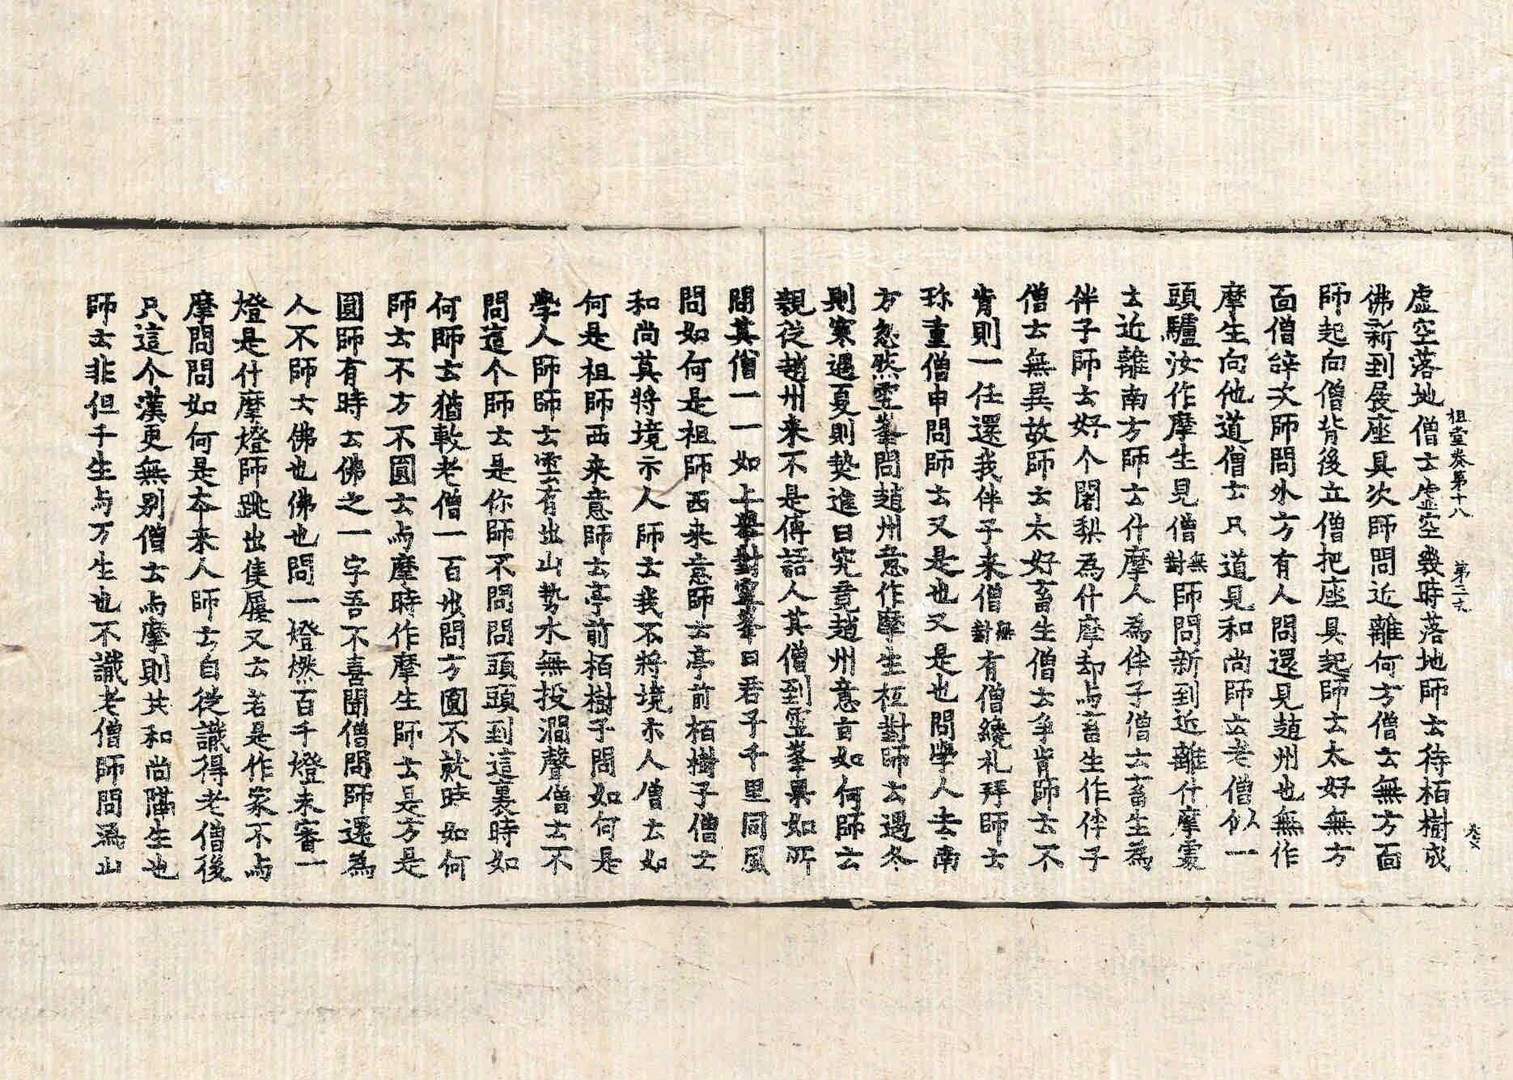 祖堂卷第十八 第二丈
虛空落地僧士虛空幾時落地師云待栢樹成
佛新到展座具次師問近離何方僧云無方面
師起向僧背後立僧把座具起師云太好無方
面僧辝次師問外方有人問還見趙州也無作
摩生向他道僧云只道見和尚師云老僧似一
頭驢汝作摩生見僧無對師問新到近離什摩處
士近離南方師士什摩人為伴子僧士畜生為
伴子師云好个闍梨為什摩却与畜生作伴子
僧云無異故師士太好畜生僧士爭肯師士不
肯則一任還我伴子来僧無對有僧繞礼拜師士
珎重僧申問師士又是也又是也問學人去南
方忽然雪峯問趙州意作摩生柢對師云遇冬
則寒遇夏則熱進曰究竟趙州意旨如何師云
親從趙州来不是傳語人其僧到雪峯果如所
問其僧一一如上舉對雪峯曰君子千里同風
問如何是祖師西来意師云亭前栢樹子僧士
和尚莫將境示人師士我不將境示人僧士如
何是祖師西来意師云亭前栢樹子問如何是
學人師師士雲有出山勢水無投澗聲僧士不
問這个師師士是你師不問問頭頭到這裏時如
何師士猶較老僧一百步問方圓不就時如何
師云不方不圓士与摩時作摩生師士是方是
圓師有時云佛之一字吾不喜聞僧問師還為
人不師士佛也佛也問一燈燃百千燈未審一
燈是什摩燈師跳出隻履又云若是作家不与
摩問問如何是夲来人師士自從識得老僧後
只這个漢更無別僧士与摩則共和尚隔生也
師士非但千生与万生也不識老僧師問溈山